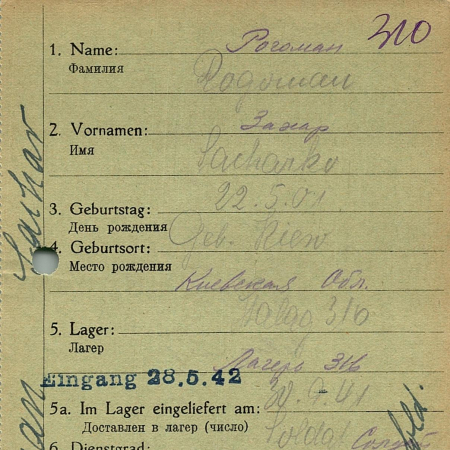 310
1. Name: Рогоман
Фамилия
Rogoman
2. Vornamen: Захар
Имя
Sacharko
3. Geburtstag: 22.5.01
День рождения
4. Geburtsort: Geb. Kiew
Место рождения
Киевская Обл.
5. Lager: 310
Лагер
Лагерь
Eingang 28.5.42
5a. Im Lager eingeliefert am: 30.7.41
Доставлен в лагер (число)
6. Dienstgrad: Soldat
Sachar